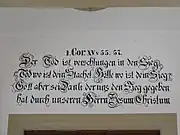 1. Cor. XV. 55. 57.
Der Tod ist verschlungen in den Sieg.
Tod wo ist dein Stachel, Hölle wo ist dein Sieg?
Gott aber sei Dank! der uns den Sieg gegeben
hat durch unseren Herrn Jesum Christum